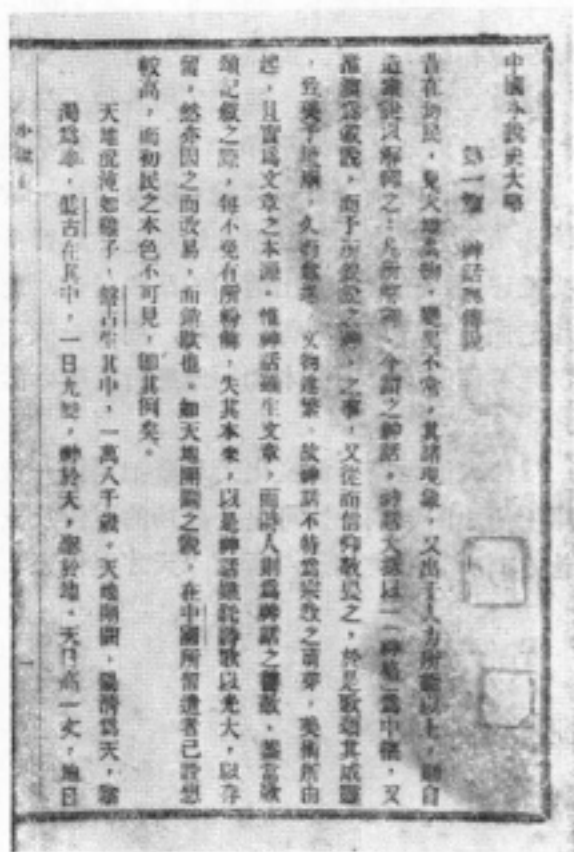 中國小說史大略
第一篇　神話與傳說
昔在初民，見天地萬物，變異不常，其諸現象，又出于人力所能以上，則自
造衆說以解釋之：凡所解釋，今謂之神話。神話大抵以一「神格」爲中樞，又
推演爲敍說，而于所敍說之神，之事，又從而信仰敬畏之，於是歌頌其威靈
，致美于壇廟，久而愈進，文物遂繁。故神話不特爲宗教之萌芽，美術所由
起，且實爲文章之本源。惟神話雖生文章，而詩人則爲神話之讐敵，蓋當歌
頌記敍之際，每不免有所粉飾，失其本來，以是神話雖託詩歌以光大，以存
留，然亦因之而改易，而銷歇也。如天地開闢之說，在中國所留遺者已設想
較高，而初民之本色不可見，即其例矣。
天地混沌如雞子，盤古生其中，一萬八千歲，天地開闢，陽清爲天，陰
濁爲地，盤古在其中，一日九變，神於天，聖於地。天日高一丈，地日
小說史
一